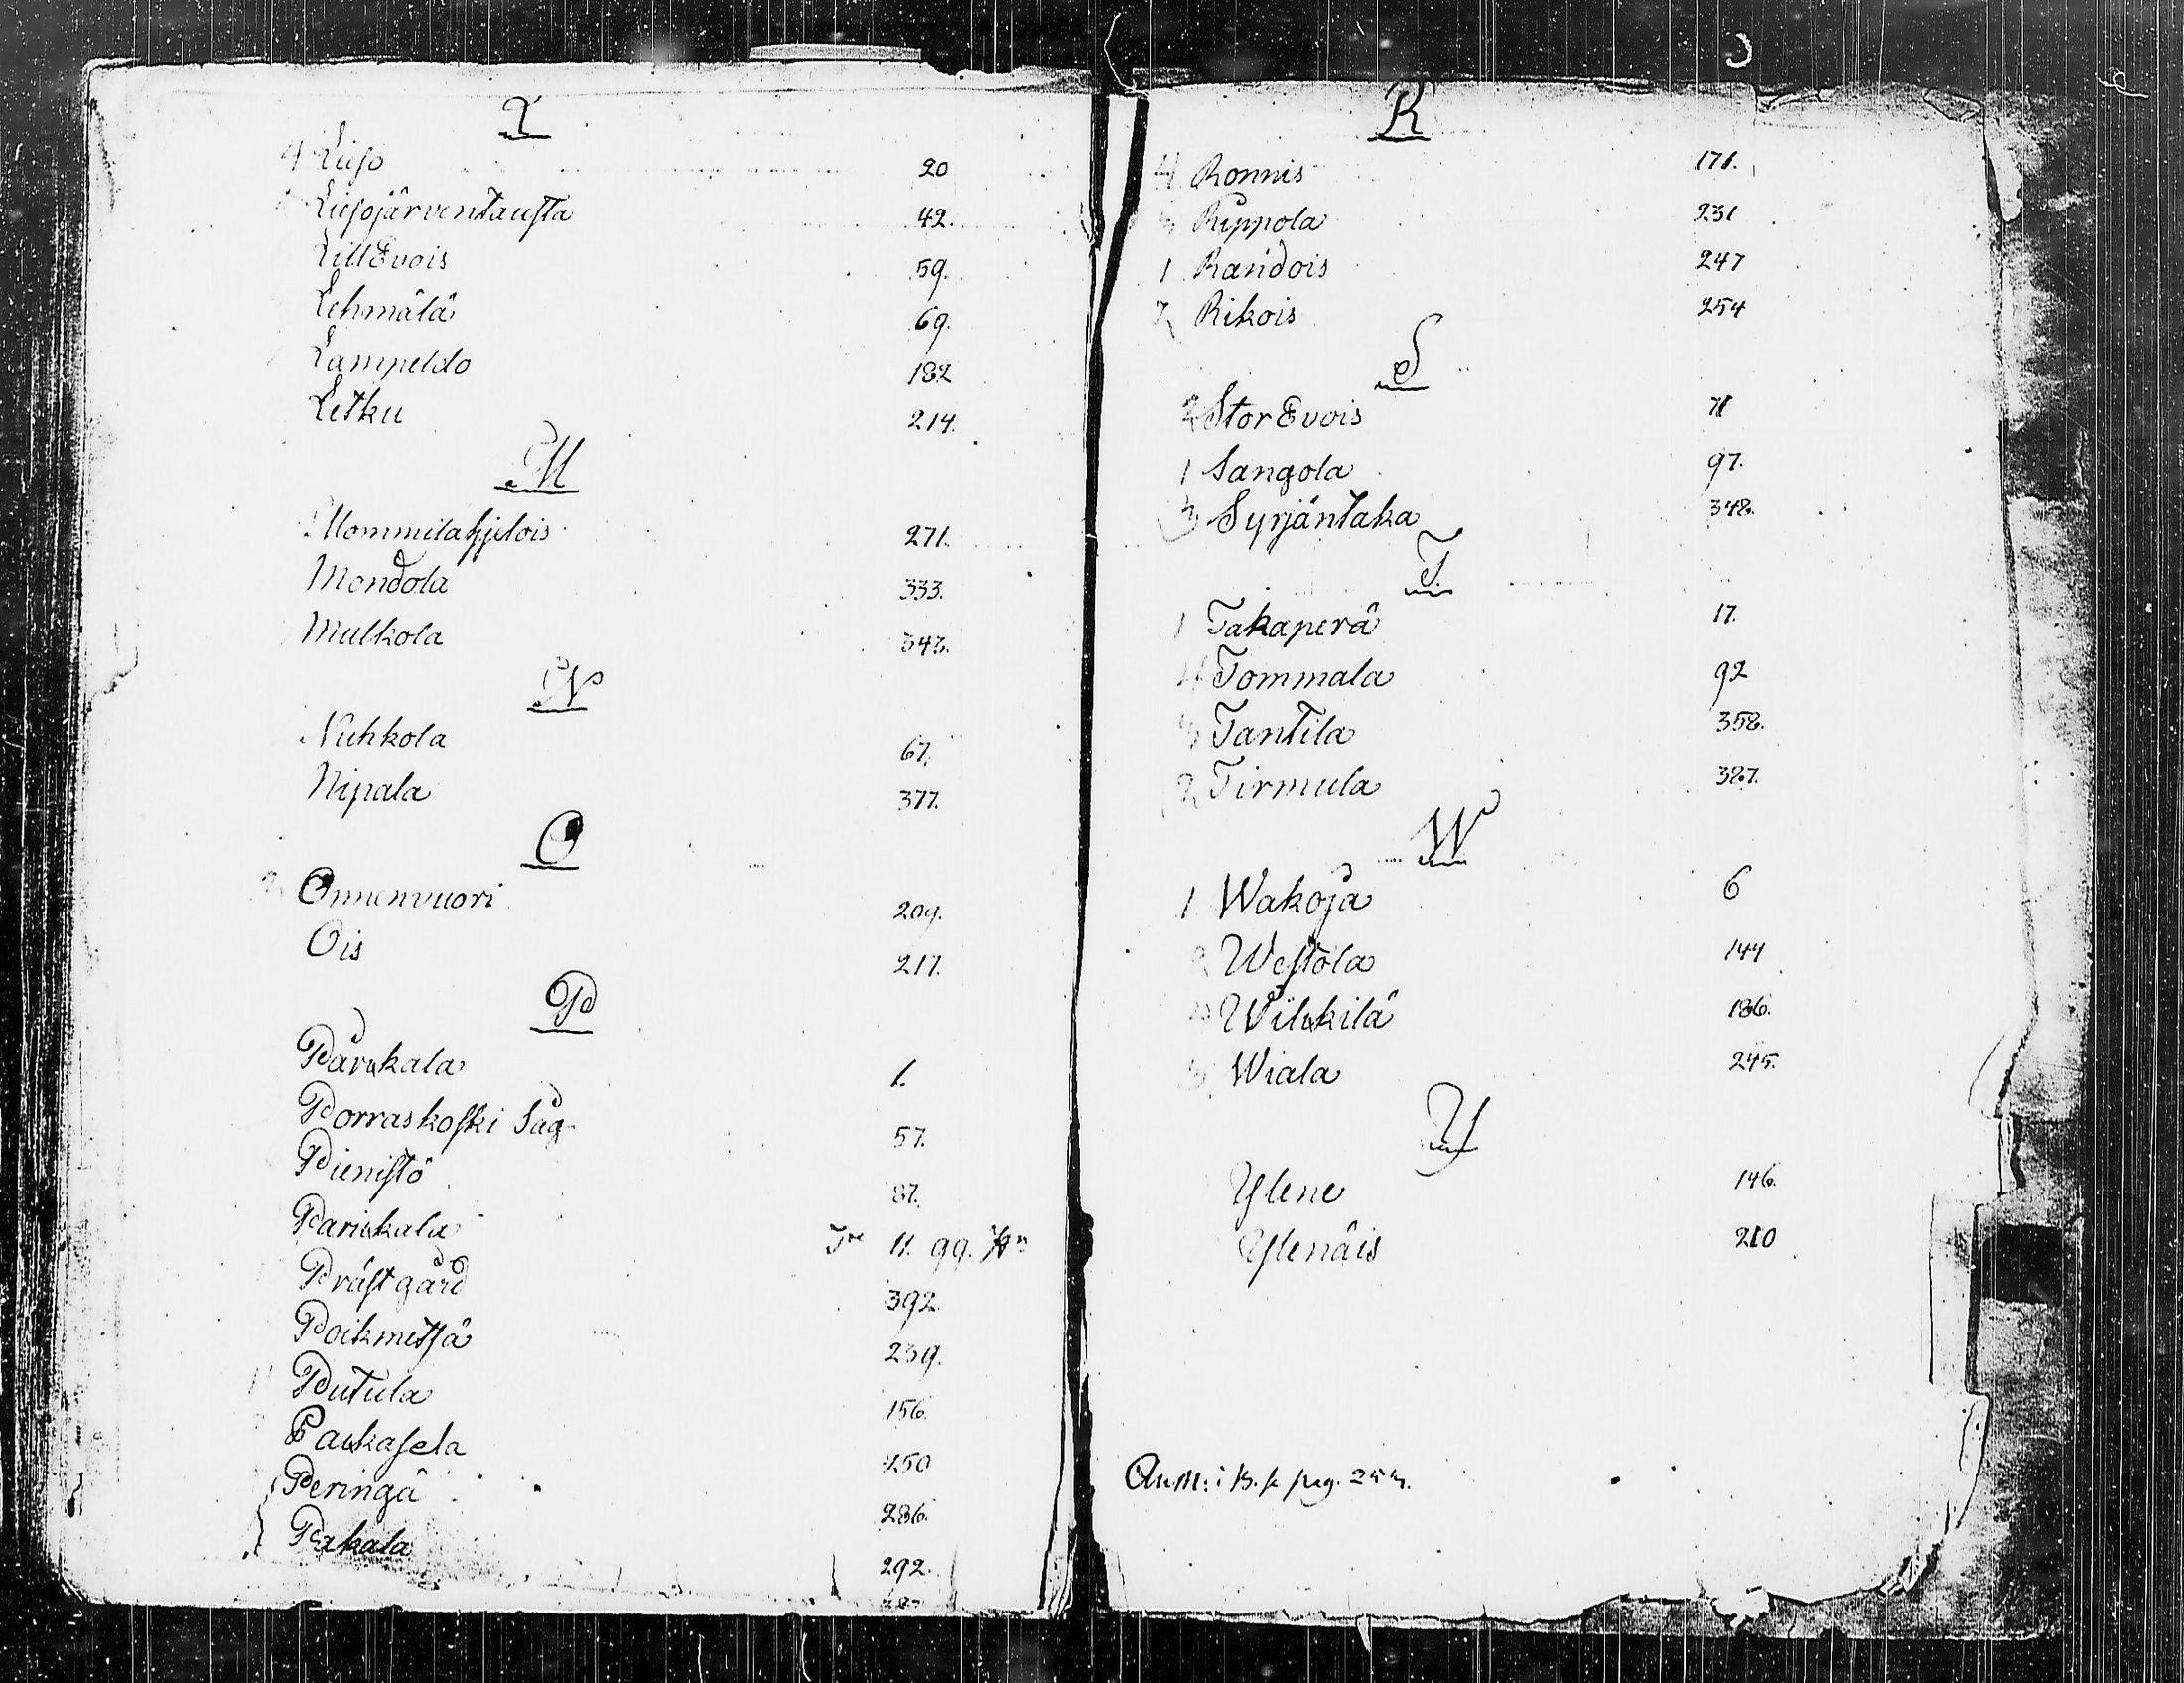 L
4 Lieso 20
Liesojärventausta 42.
Lill Evois 59.
Lehmälä 69.
Lampeldo 182
Letku 214.
M
Mommilahjelois 271.
Mendola 333.
Mulkola 343.
N
Nuhkola 67.
Nipala 377.
O
2 Onnenvuori 209.
Ois 217.
P
1.
Porraskoski Såg 57.
Pienistö 87.
11. 99.
Prästgård 392.
Poikmetsä 239.
Putula 156.
Paukasela 250
Peringä 286.
Pakala 292.
R
4 Ronnis 171.
Rippola 231
1 Randois 247
Rikois 254
S
2 Stor Evois 71
1 Sangola 97.
3 Syrjäntaka 348.
T
1 Takaperä 17.
4 Tommala 92
3 Tantila 358.
2 Tirmula 387.
W
1 Wakoja 6
2 Westola 144
Wilukilä 186.
3 Wiala 245.
Y
Ylene 146.
Ylenäis 210
pag.